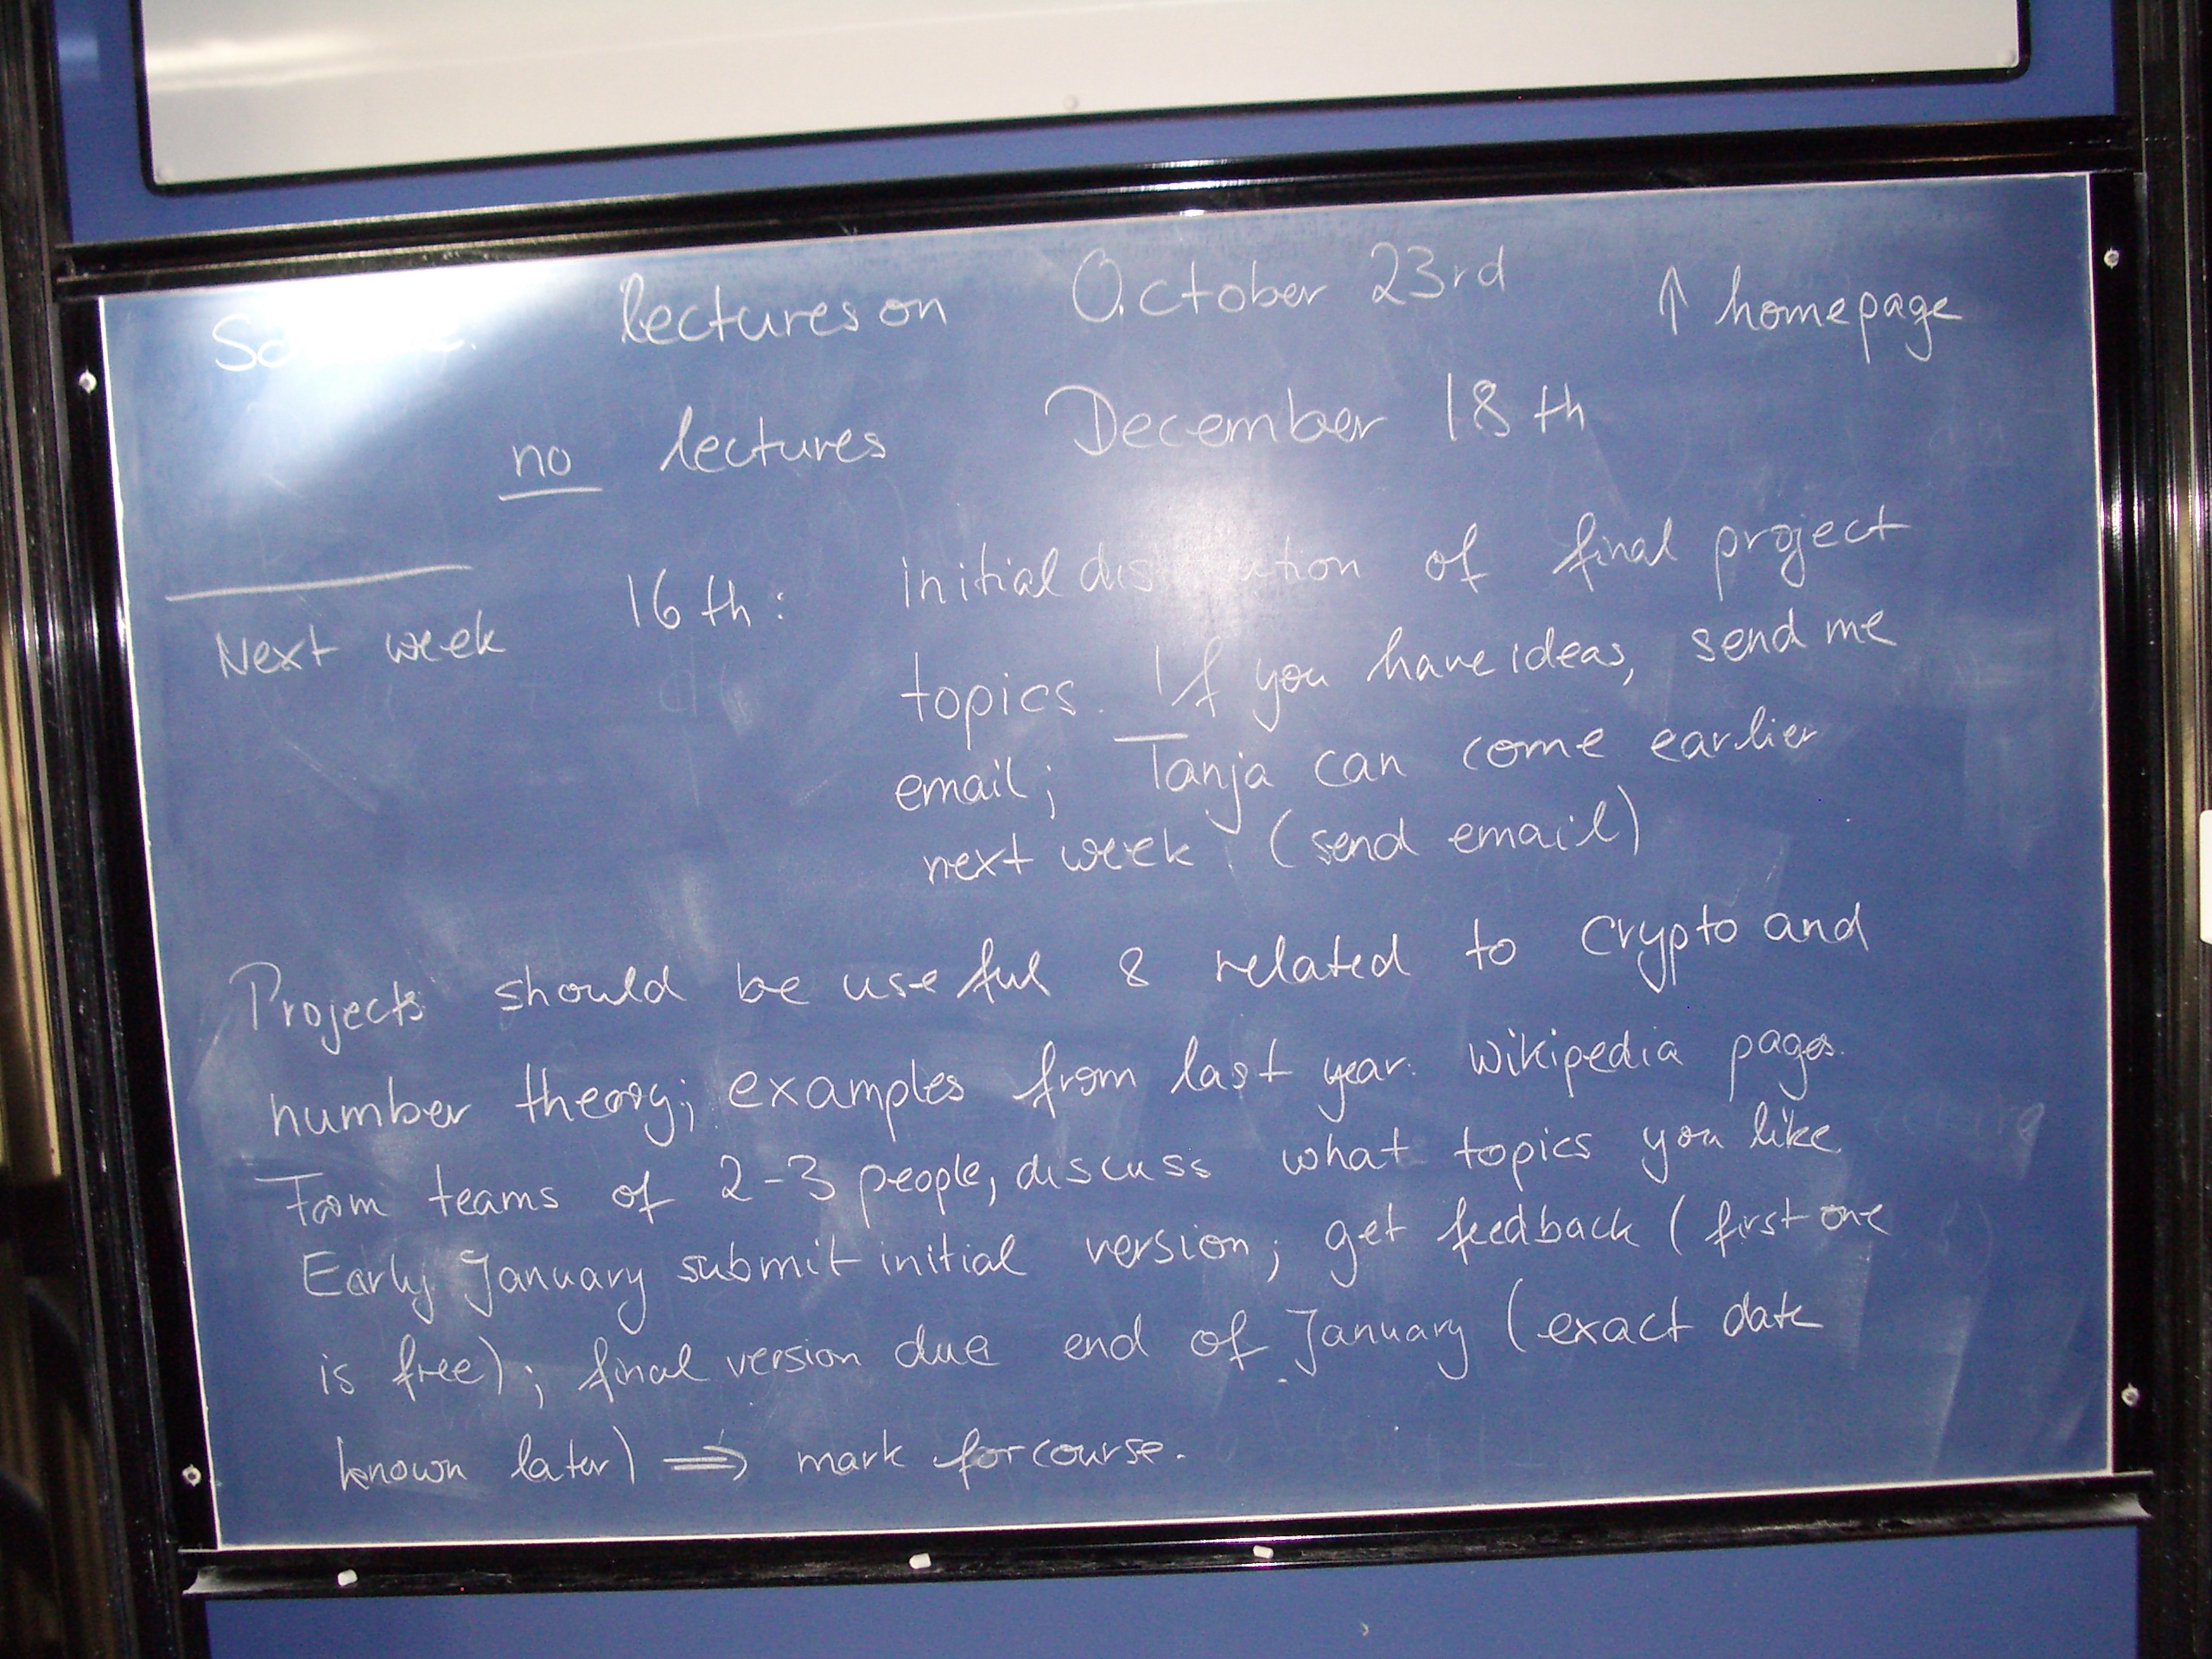 lectures on October 23rd ↑ homepage
no lectures December 18th
Next week 16th: initial of final project
topics. If you have ideas, send me
email; Tanja can come earlier
next week (send email)
Projects should be useful & related to crypto and
number theory; examples from last year: wikipedia pages.
Form teams of 2-3 people, discuss what topics you like
Early January submit initial version; get feedback (first one
is free); final version due end of January (exact date
known later) ⇒ mark for course.